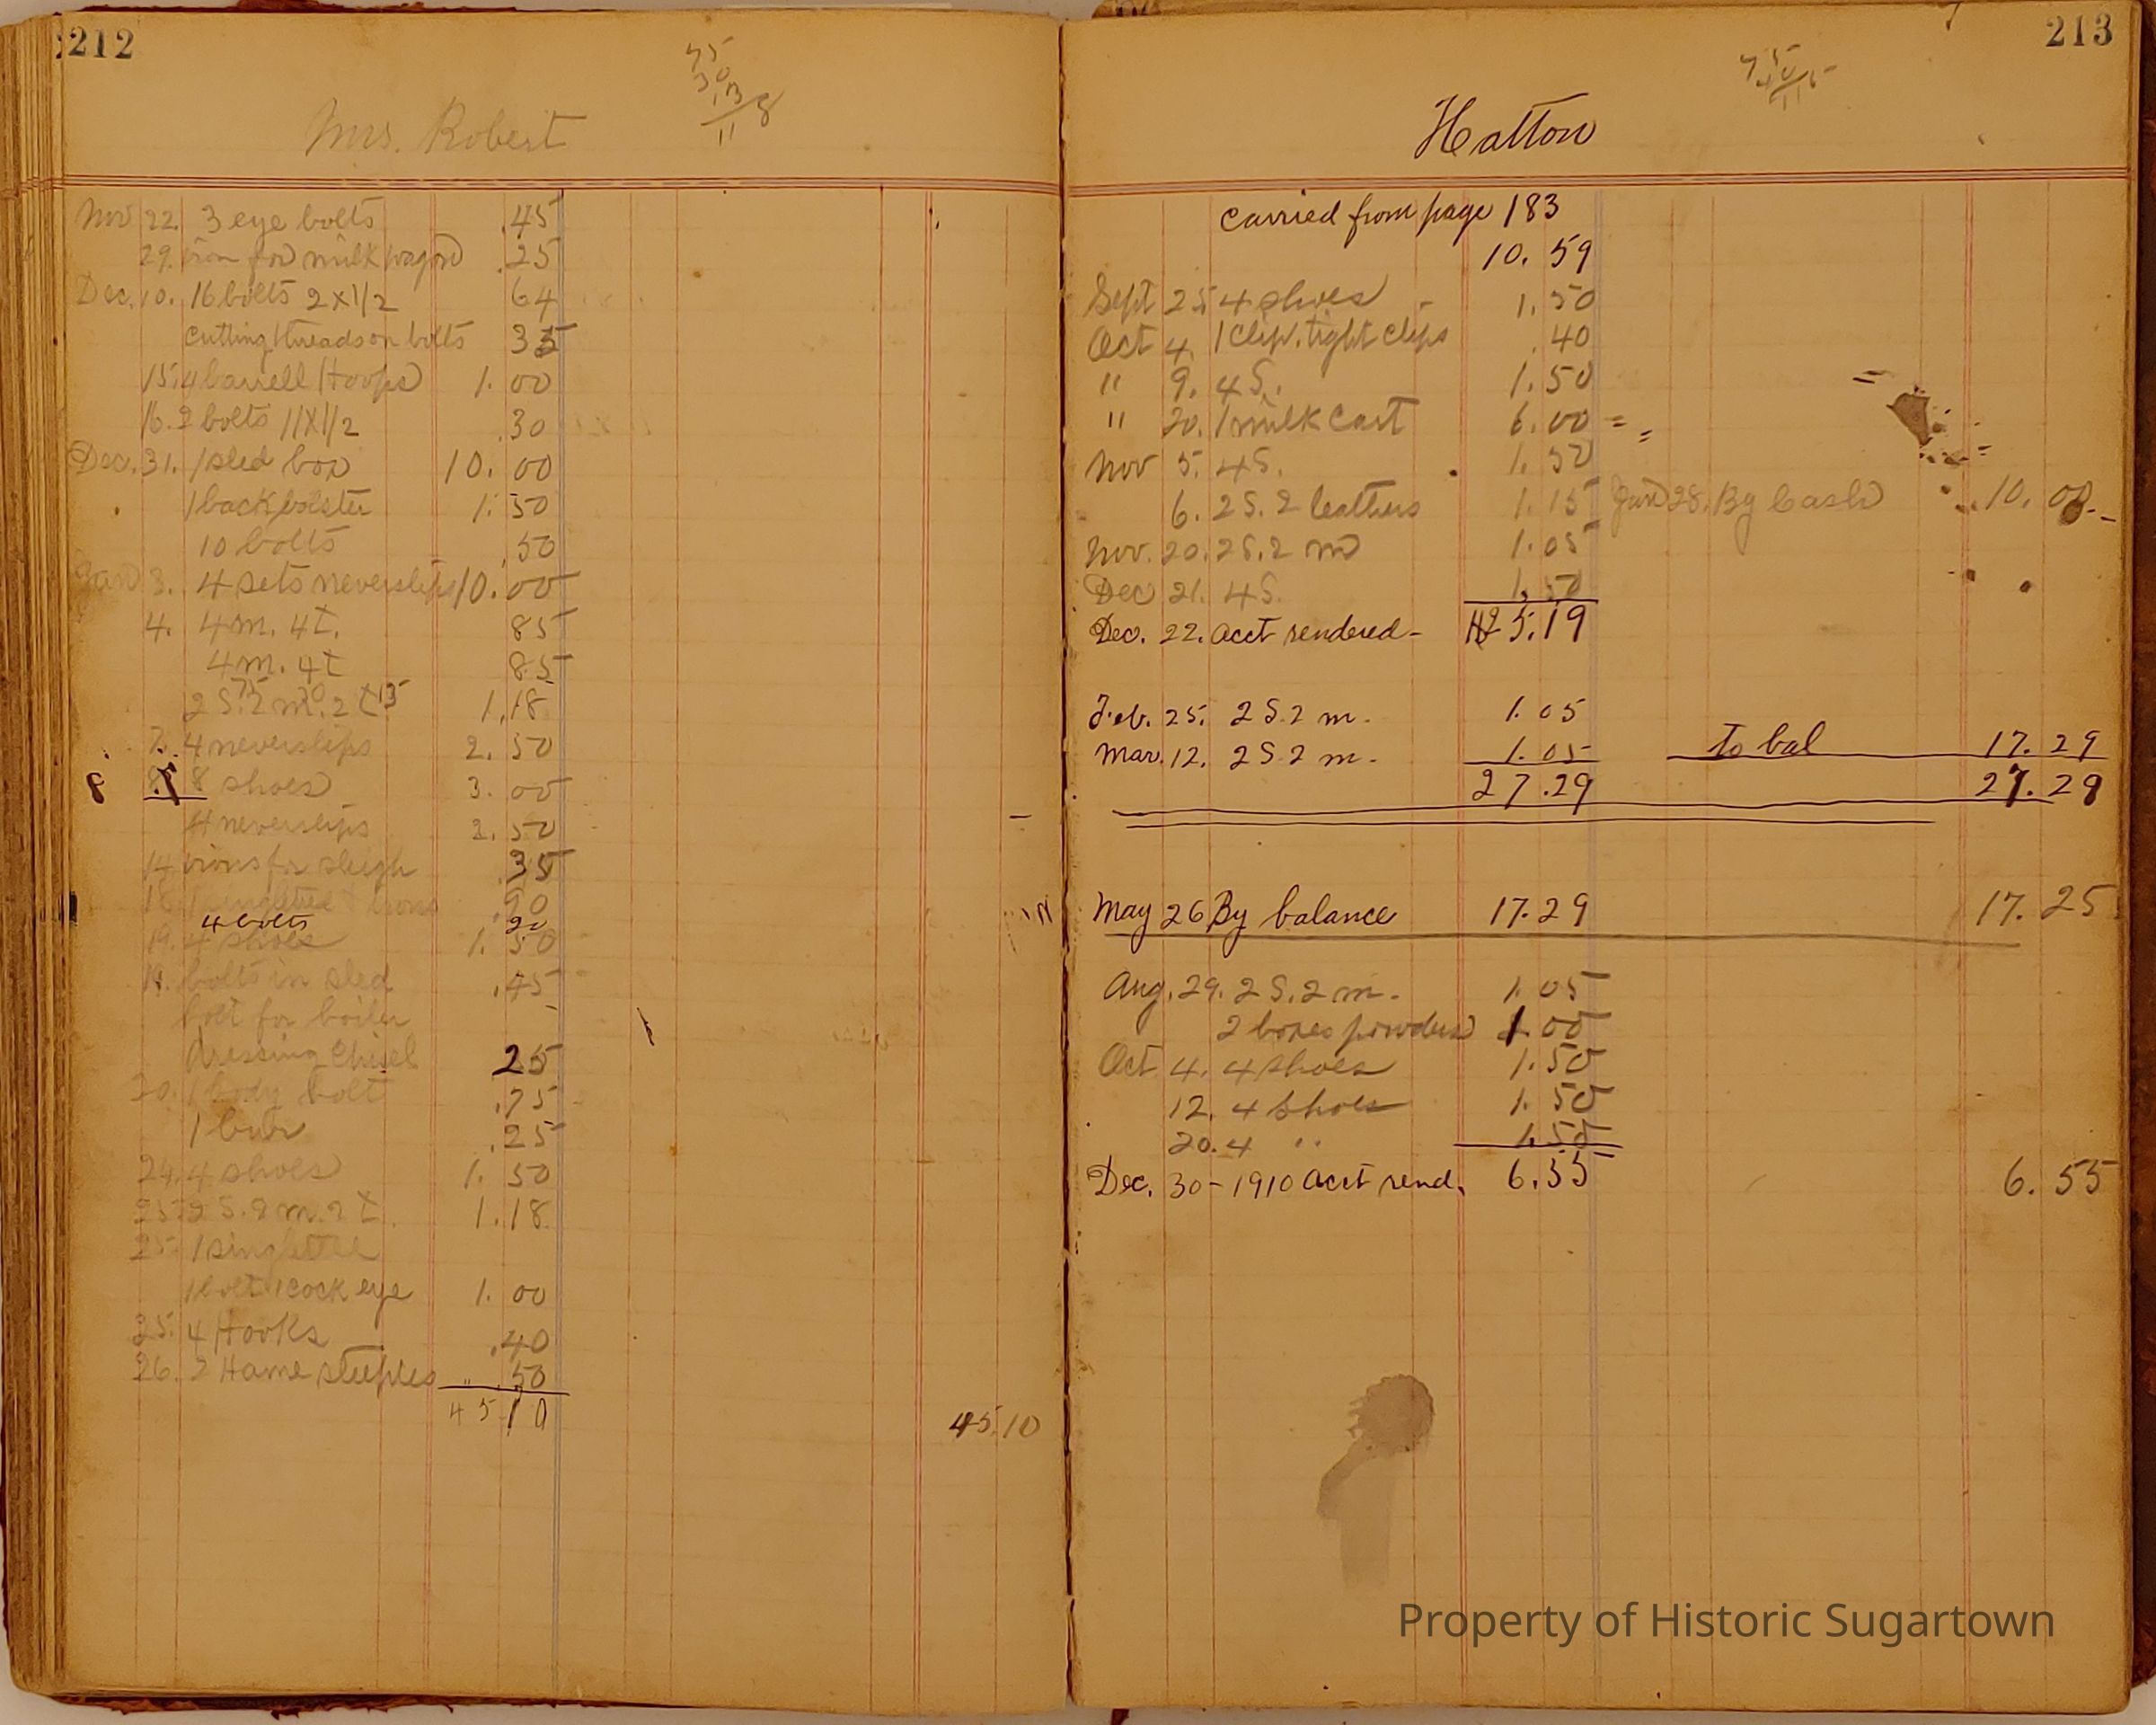 212
75
30
13
118
Mrs. Robert
Nov 22. 3 eye bolts .45
29. iron for milk wagon .25
Dec. 10. 16 bolts 2x1/2 64
Cutting threads on bolts 35
15. 4 barrell Hoops 1.00
16. 2 bolts 11x1/2 .30
Dec. 31. 1 sled box 10.00
1 back bolster 1.50
10 bolts .50
Jan 3. 4 sets neverslips 10.00
4. 4 m. 4 t. 85
4 m. 4 t 85
75 30 13
2 S. 2 m. 2 t 1.18
7. 4 neverslips 2.50
8 8 shoes 3.00
4 neverslips 2.50
14 irons for sleigh .35
18. 1 singletree & irons .90
4 bolts 20
19. 4 shoes 1.50
19. bolts in sled .45
bolt for boiler
dressing chisel 25
20. 1 body bolt .75
1 bur .25
24. 4 shoes 1.50
25. 2 S. 2 m. 2 t. 1.18
25. 1 singletree
1 bolt 1 cock eye 1.00
25. 4 Hooks .40
26. 2 Hame steeples .50
45 10
45.10
213
75
40
115
Hatton
Carried from page 183
10.59
Sept 25 4 shoes 1.50
Oct 4. 1 clip. tight clips .40
" 9. 4 S. 1.50
" 20. 1 milk cart 6.00
Nov 5. 4 S. 1.50
6. 2 S. 2 leathers 1.15 Jan 28. By Cash 10.00
Nov. 20. 2 S. 2 m 1.05
Dec 21. 4 S. 1.50
Dec. 22. acct rendered - 25.19
Feb. 25. 2 S. 2 m. 1.05
Mar. 12. 2 S. 2 m. 1.05 To bal 17.29
27.29 27.29
May 26 By balance 17.29 17.25
Aug. 29. 2 S. 2 m. 1.05
2 boxes powders 1.00
Oct 4. 4 shoes 1.50
12. 4 shoes 1.50
20. 4 " 1.50
Dec. 30 - 1910 acct rend. 6.55 6.55
Property of Historic Sugartown